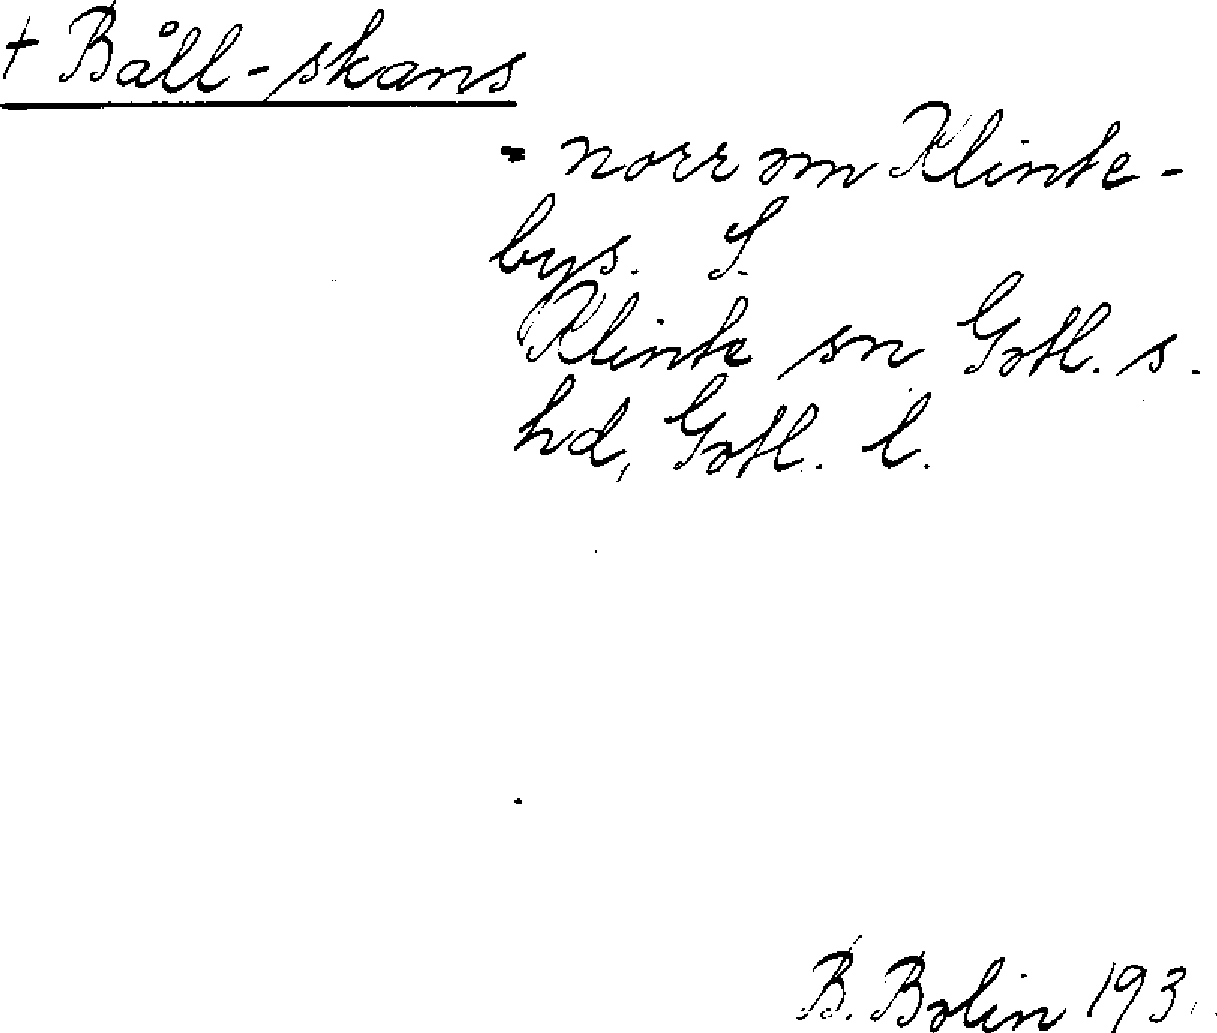 + Båll-skans
- norr om Klinte-
bys. S.
Klinte sn Gotl. s.
hd, Gotl. l.
B. Bolin 193